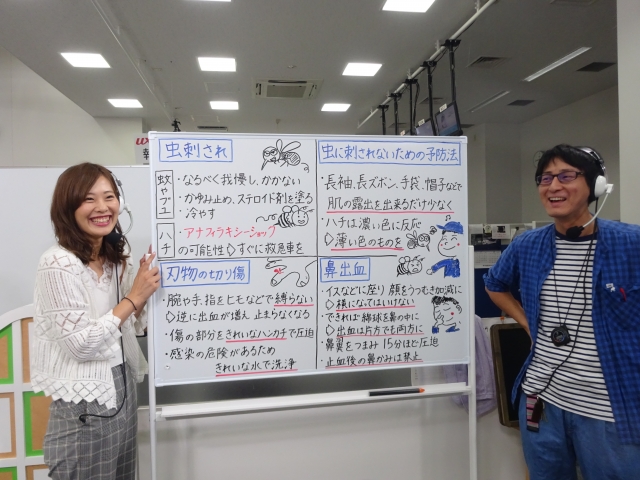 虫刺され
蚊やブユ
・なるべく我慢し、かかない
・かゆみ止め、ステロイド剤を塗る
・冷やす
ハチ
・アナフィラキシーショック
の可能性◇すぐに救急車を
虫に刺されないための予防法
・長袖、長ズボン、手袋、帽子などで
肌の露出を出来るだけ少なく
・ハチは濃い色に反応
◇薄い色のものを
刃物の切り傷
・腕や手、指をヒモなどで縛らない
◇逆に出血が増え 止まらなくなる
・傷の部分をきれいなハンカチで圧迫
・感染の危険があるため
きれいな水で洗浄
鼻出血
・イスなどに座り 顔をうつむき加減に
◇横になってはいけない
・できれば綿球を鼻の中に
◇出血は片方でも両方に
・鼻翼をつまみ 15分ほど圧迫
・止血後の鼻かみは禁止